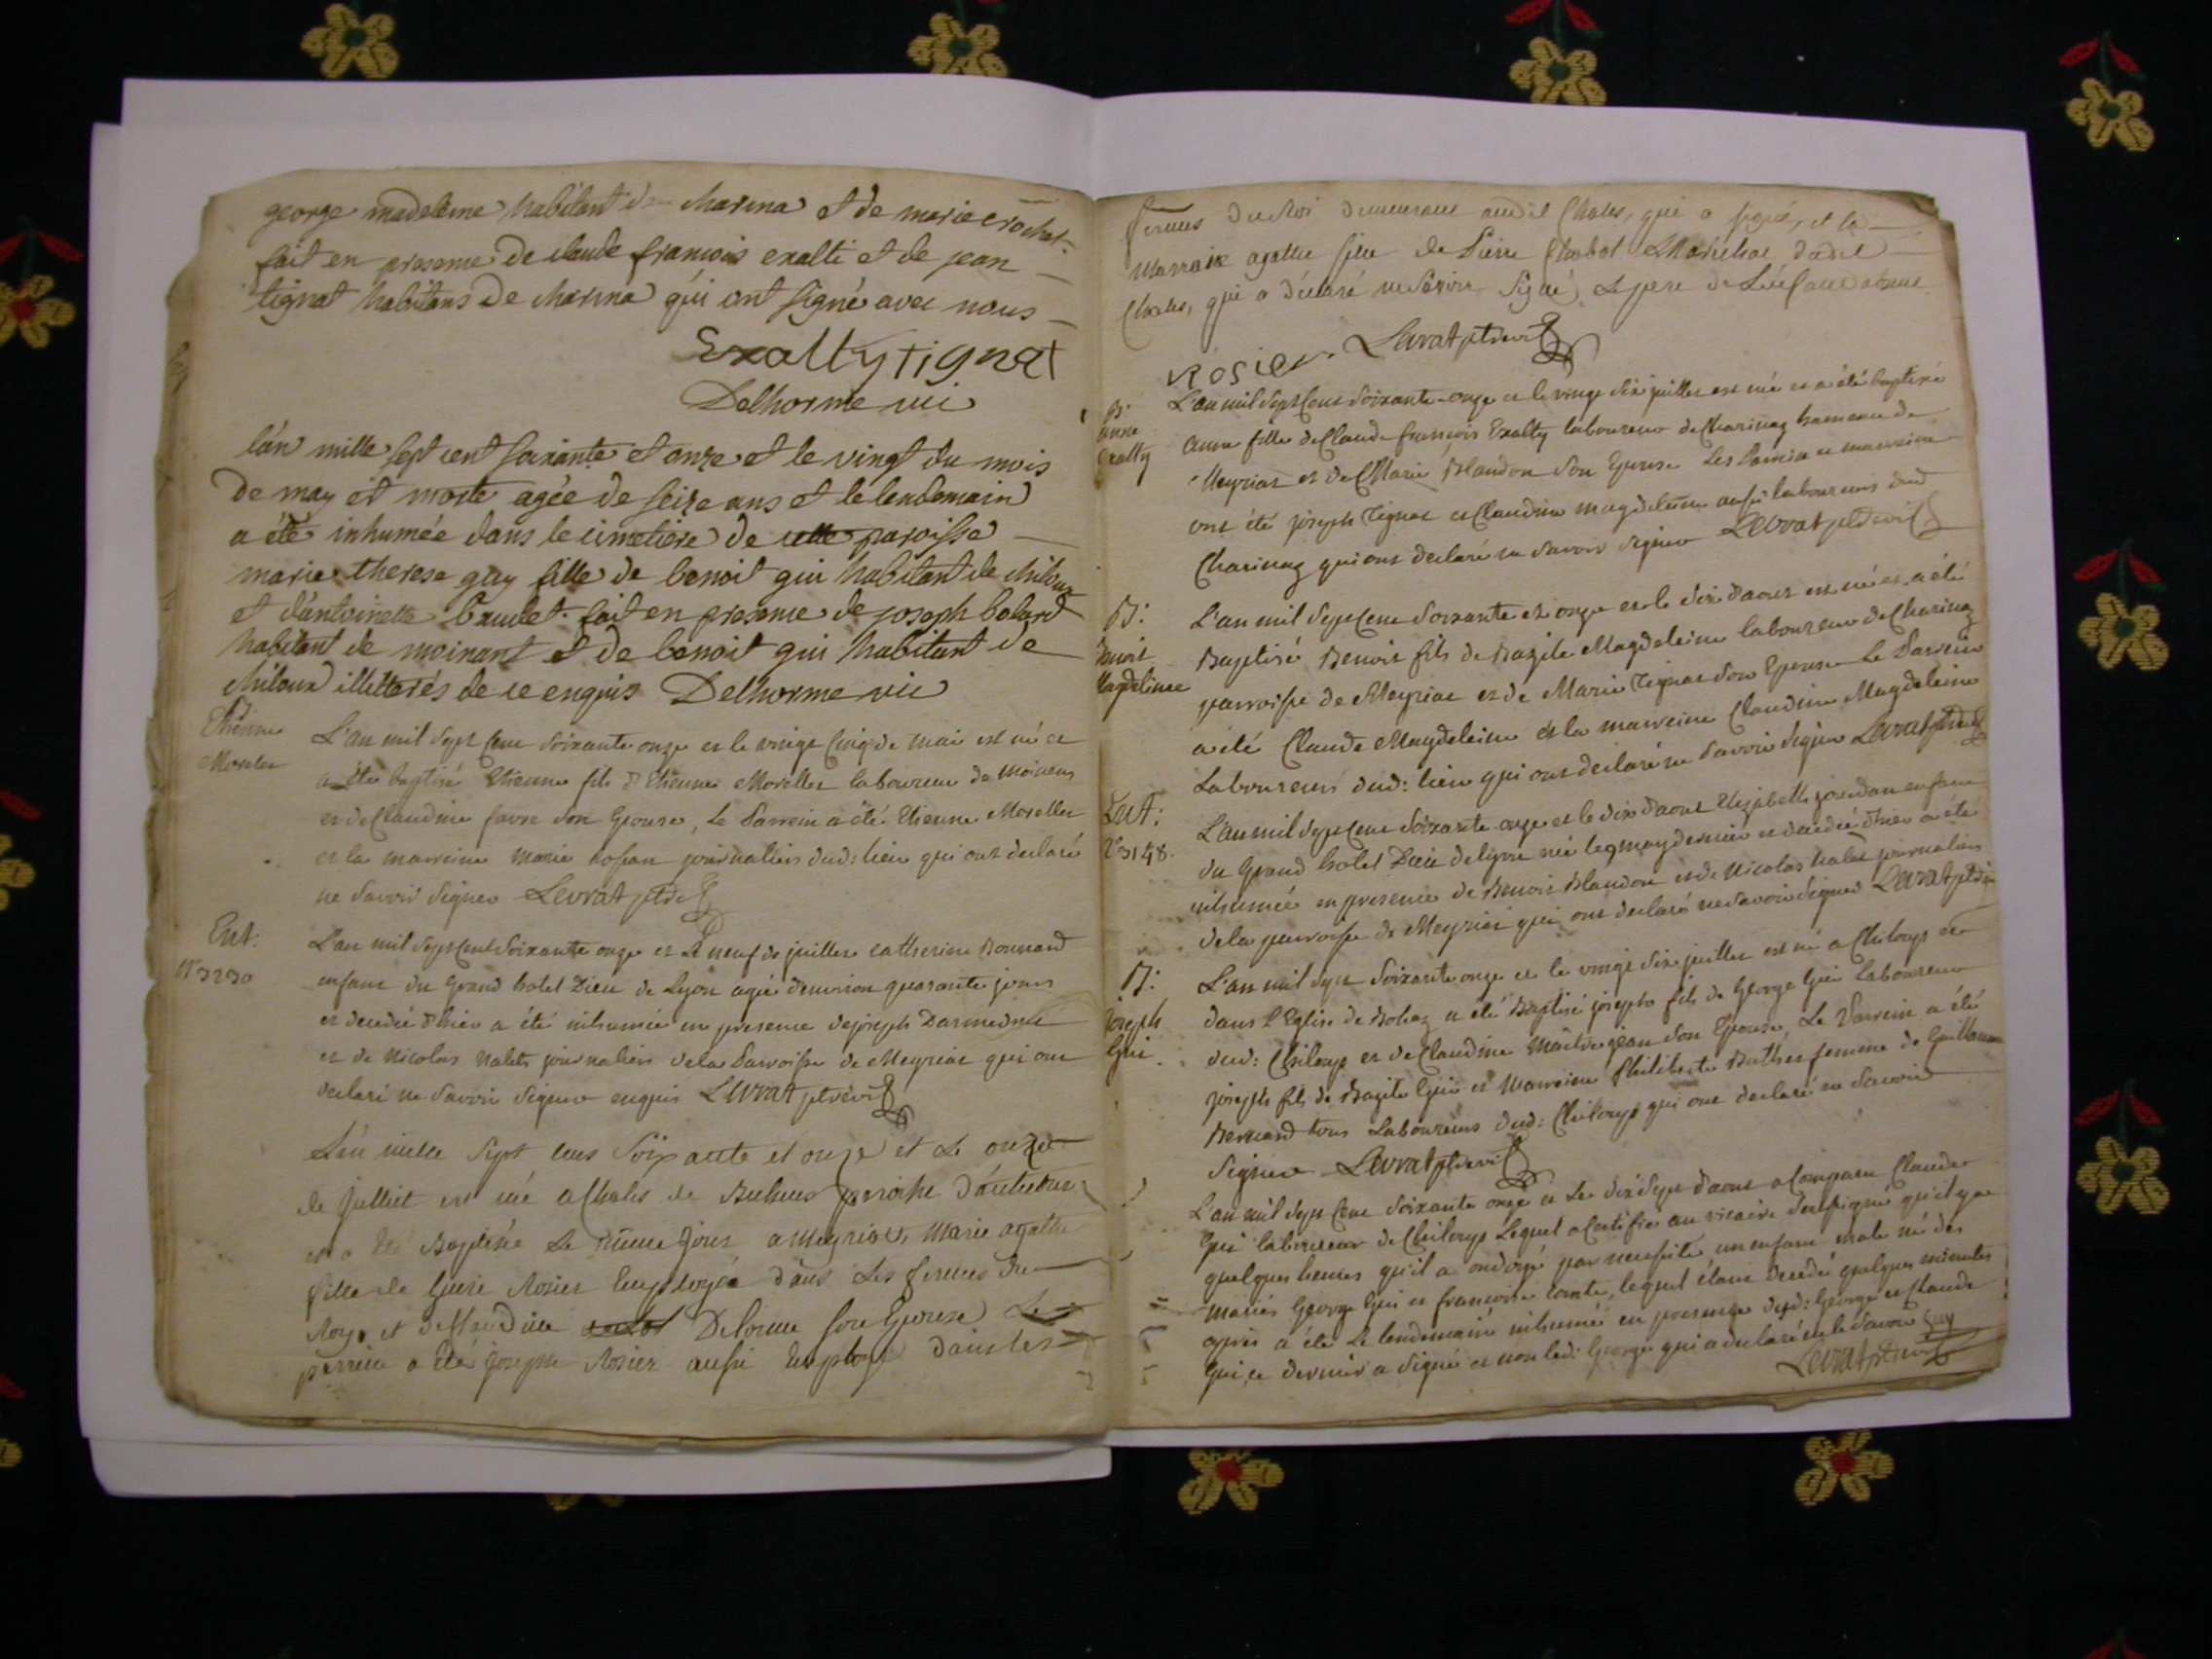 george madeleine habitant de Marina et de marie crochet
fait en presence de claude françois exalti et de jean
tignat habitans de Marina qui ont signé avec nous
Exalty tignat
Delhorme vic
l'an mille sept cent soixante et onze et le vingt du mois
de may est morte agée de seize ans et le lendemain
a été inhumée dans le cimetiere de cette paroisse
marie therese guy fille de benoit gui habitant de chiloux
et d'antoinette fait en presence de joseph bolard
habitant de moinant et de benoit gui habitant de
chiloux illetterés de ce enquis Delhorme vic
Etienne
Morelle
L'an mil sept cent soixante onze et le vingt cinq de mai est né et
a été baptisé Etienne fils d'Etienne Morellet laboureur de Moinens
et de Claudine favre son Epouse, Le Parrein a été Etienne Morellet
et la marreine Marie journaliers dud: lieu qui ont declaré
ne savoir signer Levrat ptre
Ent:
n° 3230
L'an mil sept cent soixante onze et le neuf de juillet catherine Bonnard
enfant du Grand hotel Dieu de Lyon agée d'environ quarante jours
et decedée d'hier a été inhumée en presence de joseph
et de Nicolas Nalet journaliers de la Parroisse de Meyriat qui ont
declaré ne savoir signer enquis Levrat ptre vic
L'an mille sept cens soixante et onze et le onze
de Juilliet est né a Chales de Bohas parroisse
et a été Baptisée Le même jour a Meyriat, Marie agathe
fille de Rosier Employée dans Les fermes Du
Roy, et de Claudine Delorme son Epouse Le
parrein a été Joseph Rosier aussi Employé dans les
fermes du Roi demeurant audit Chales, qui a signé, et la
Marraine agathe fille de Pierre Chabot Marechal dudit
Chales, qui a déclaré ne savoir signé, Le pere de L'enfant absent
Rosier Levrat ptre vic
B.
anne
Exalty
L'an mil sept cent soixante-onze et le vingt six juillet est née et a été baptisée
Anne fille de Claude françois Exalty laboureur de Charinaz hameau de
Meyriat et de Marie Blandon son Epouse Les Parrein et marreine
ont été joseph Tignat et Claudine Magdeleine aussi laboureurs dud
Charinaz qui ont declaré ne savoir signer Levrat ptre vic
B:
Benoit
Magdeleine
L'an mil sept cent soixante et onze et le dix d'aout est né et a été
Baptisé Benoit fils de Bazile Magdeleine laboureur de Charinaz
parroisse de Meyriat et de Marie Tignat son Epouse Le Parrein
a été Claude Magdeleine et la marreine Claudine Magdeleine
Laboureurs dud: lieu qui ont declaré ne savoir signer Levrat ptre
Ent:
n° 3148.
L'an mil sept cent soixante onze et le dix d'aout Elizabeth jourdan enfant
du Grand hotel Dieu de Lyon née le 9 may dernier et decedée d'hier a été
inhumée en presence de Benoit Blandon et de Nicolas Nalet journaliers
de la parroisse de Meyriat qui ont declaré ne savoir signer Levrat ptre
B:
joseph
Gui
L'an mil sept soixante onze et le vingt six juillet est né a Chiloup et
dans l'Eglise de Bohaz a été Baptisé joseph fils de George Gui laboureur
dud: Chiloup et de Claudine Maitrejean son Epouse, Le Parrein a été
joseph fils de Bazile Gui et Marreine Philiberte femme de Guillaume
Bernard tous Laboureurs dud: Chiloup qui ont declaré ne savoir
Signer Levrat ptre vic
L'an mil sept cent soixante onze et Le dix sept d'aout a Comparu Claude
Gui laboureur de Chiloup Lequel a Certifié au vicaire soussigné qu'il y a
quelques heures qu'il a ondoyé par necessité un enfant male né des
mariés George Gui et francoise Comte, lequel étant decedé quelques minutes
après a été Le lendemain inhumé en presence dud: George et Claude
Gui, ce dernier a signé et non led: George qui a declaré ne le savoir Guy
Levrat ptre vic